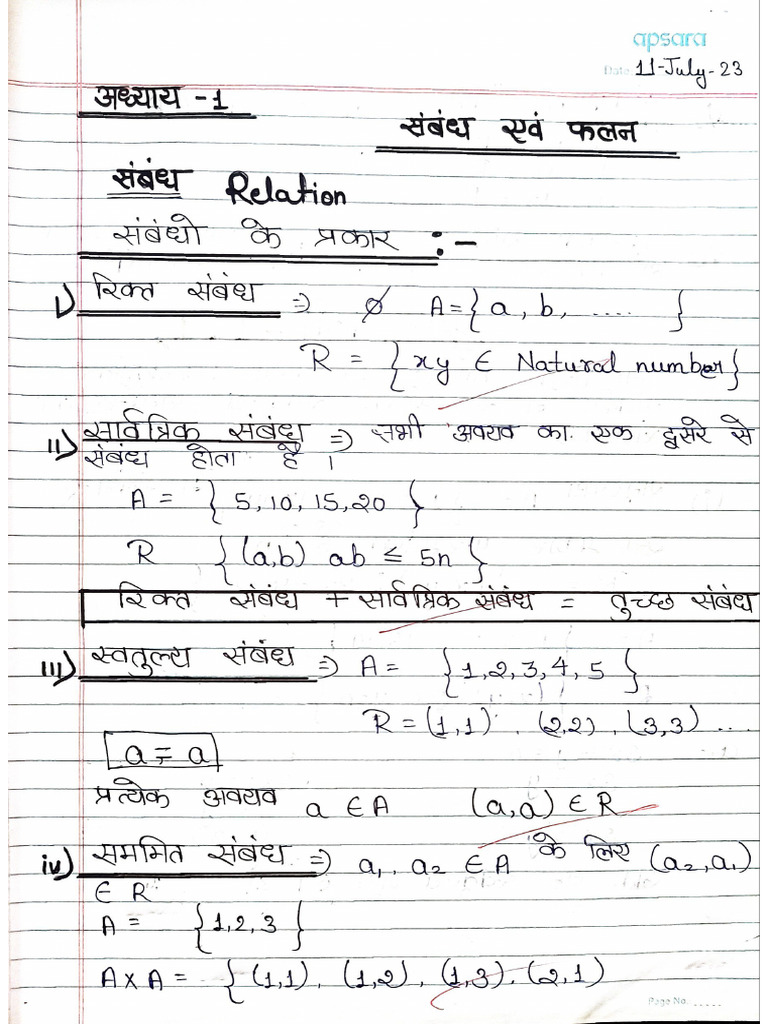 apsara
Date 11-July-23
अध्याय -1
संबंध एवं फलन
संबंध Relation
संबंधो के प्रकार :-
i) रिक्त संबंध => ∅ A={a, b, .... }
R = {xy ∈ Natural number}
ii) सार्वत्रिक संबंध => सभी अवयव का एक दूसरे से
संबंध होता है ।
A = { 5, 10, 15, 20 }
R {(a,b) ab ≤ 5n }
रिक्त संबंध + सार्वत्रिक संबंध = तुच्छ संबंध
iii) स्वतुल्य संबंध => A = {1, 2, 3, 4, 5 }
R = (1,1) , (2,2) , (3,3) ...
a = a
प्रत्येक अवयव a ∈ A (a,a) ∈ R
iv) सममित संबंध => a₁, a₂ ∈ A के लिए (a₂, a₁)
∈ R
A = {1, 2, 3 }
A x A = {(1,1), (1,2), (1,3), (2,1)
Page No. .....